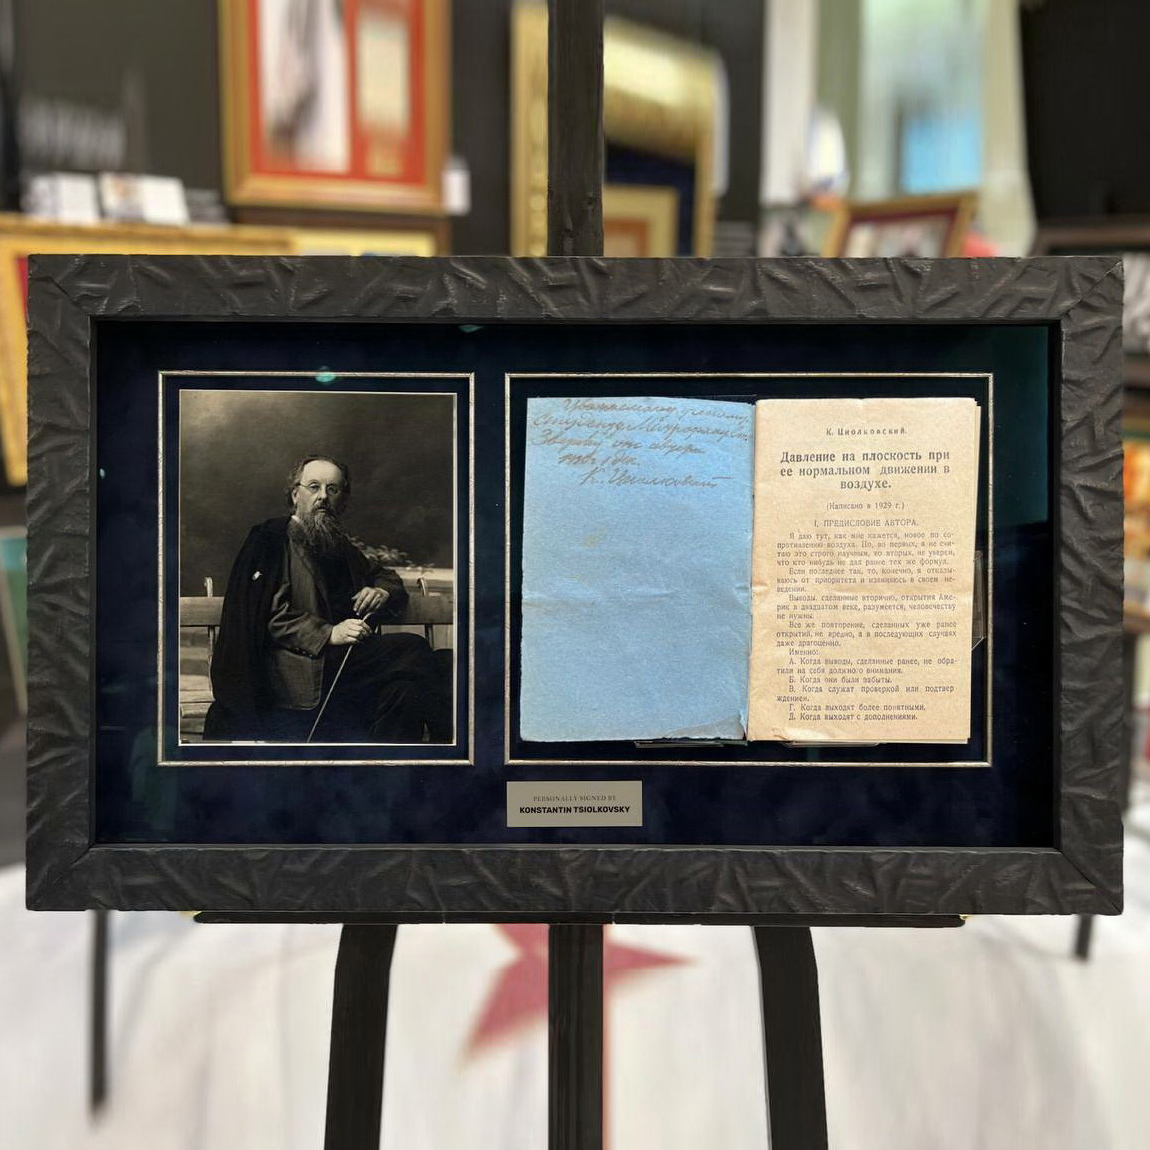 Уважаемому
Студенту
от автора
К. Циолковский
К. Циолковский.
Давление на плоскость при
ее нормальном движении в
воздухе.
(Написано в 1929 г.)
I. ПРЕДИСЛОВИЕ АВТОРА.
Я даю тут, как мне кажется, новое по со-
противлению воздуха. Но, во первых, я не счи-
таю это строго научным, во вторых, не уверен,
что кто нибудь не дал ранее тех же формул.
Если последнее так, то, конечно, я отказы-
ваюсь от приоритета и извиняюсь в своем не-
ведении.
Выводы, сделанные вторично, открытия Аме-
рик в двадцатом веке, разумеется, человечеству
не нужны.
Все же повторение, сделанных уже ранее
открытий, не вредно, а в последующих случаях
даже драгоценно.
Именно:
А. Когда выводы, сделанные ранее, не обра-
тили на себя должного внимания.
Б. Когда они были забыты.
В. Когда служат проверкой или подтвер
ждением.
Г. Когда выходят более понятными.
Д. Когда выходят с дополнениями.
PERSONALLY SIGNED BY
KONSTANTIN TSIOLKOVSKY